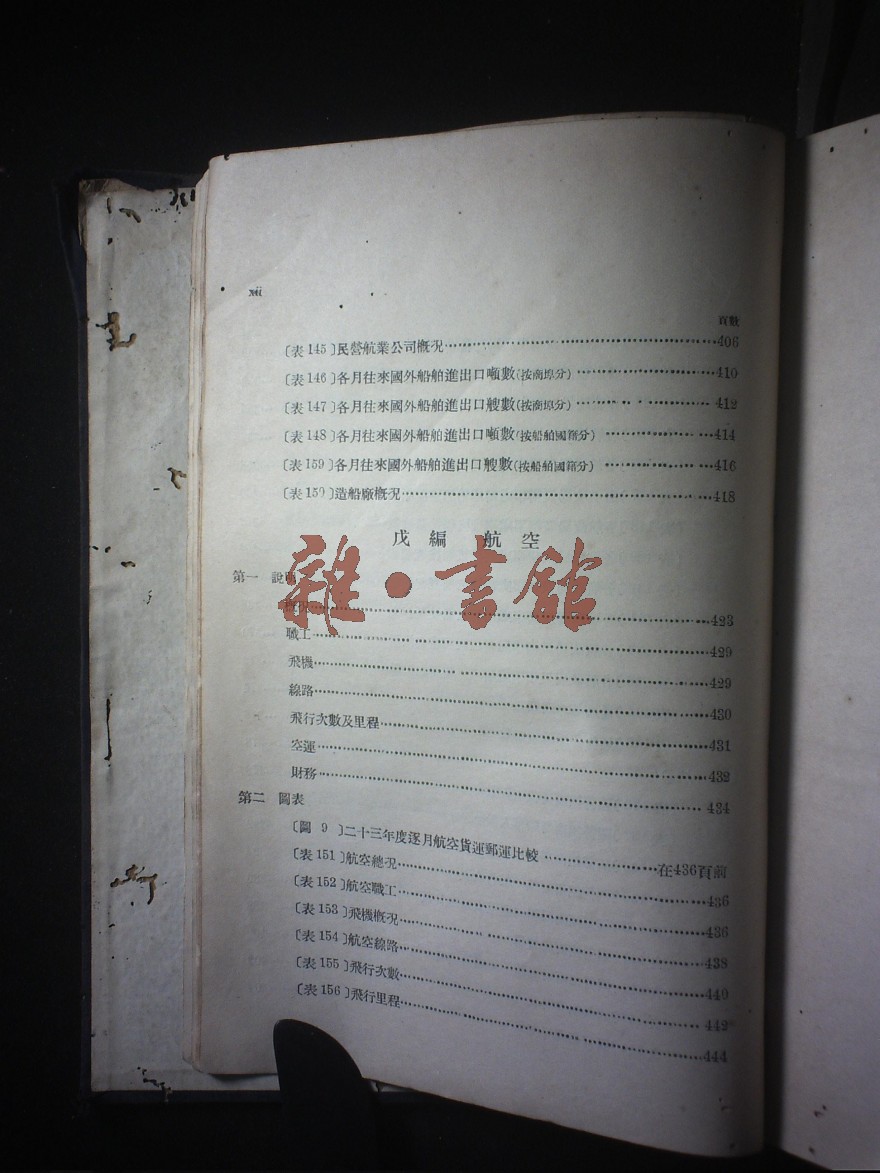 xii
頁數
〔表 145〕民營航業公司概况 406
〔表 146〕各月往來國外船舶進出口噸數(按商埠分) 410
〔表 147〕各月往來國外船舶進出口艘數(按商埠分) 412
〔表 148〕各月往來國外船舶進出口噸數(按船舶國籍分) 414
〔表 159〕各月往來國外船舶進出口艘數(按船舶國籍分) 416
〔表 150〕造船廠概况 418
戊編 航空
雜·書館
第一 說明
概况 423
職工 429
飛機 429
線路 430
飛行次數及里程 431
空運 432
財務 434
第二 圖表
〔圖 9〕二十三年度逐月航空貨運郵運比較 在436頁前
〔表 151〕航空總况 436
〔表 152〕航空職工 436
〔表 153〕飛機概况 438
〔表 154〕航空線路 440
〔表 155〕飛行次數 442
〔表 156〕飛行里程 444